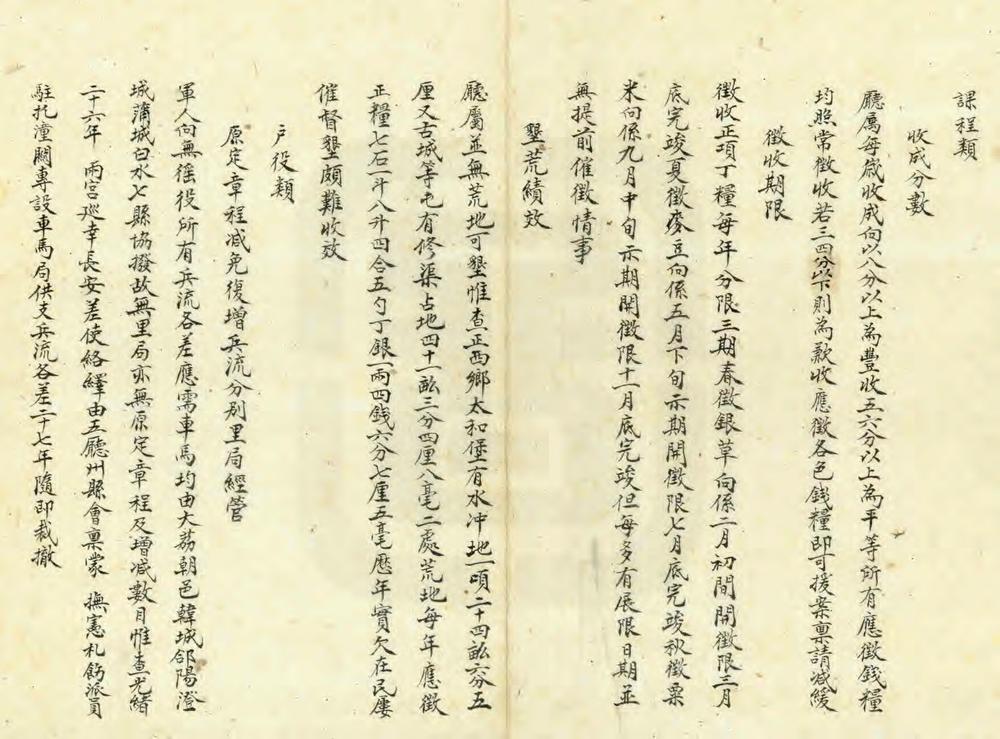 課程類
收成分數
廳屬每歲收成向以八分以上為豐收五六分以上為平等所有應徵錢糧
均照常徵收若三四分以下則為歉收應徵各色錢糧即可援案稟請減緩
徵收期限
徵收正項丁糧每年分限三期春徵銀草向係二月初間開徵限三月
底完竣夏徵麥豆向係五月下旬示期開徵限七月底完竣秋徵粟
米向係九月中旬示期開徵限十一月底完竣但每多有展限日期並
無提前催徵情事
墾荒績效
廳屬並無荒地可墾惟查正西鄉太和堡有水冲地一頃二十四畝六分五
厘又古城等屯有修渠占地四十一畝三分四厘八毫二處荒地每年應徵
正糧七石一斗八升四合五勺丁銀一兩四錢六分七厘五毫歷年實欠在民屢
催督墾頗難收效
戶役類
原定章程減免復增兵流分別里局經管
軍人向無徭役所有兵流各差應需車馬均由大荔朝邑韓城郃陽澄
城蒲城白水七縣協撥故無里局亦無原定章程及增減數目惟查光緒
二十六年 兩宮巡幸長安差使絡繹由五廳州縣會稟蒙 撫憲札飭派員
駐扎潼關專設車馬局供支兵流各差二十七年隨即裁撤